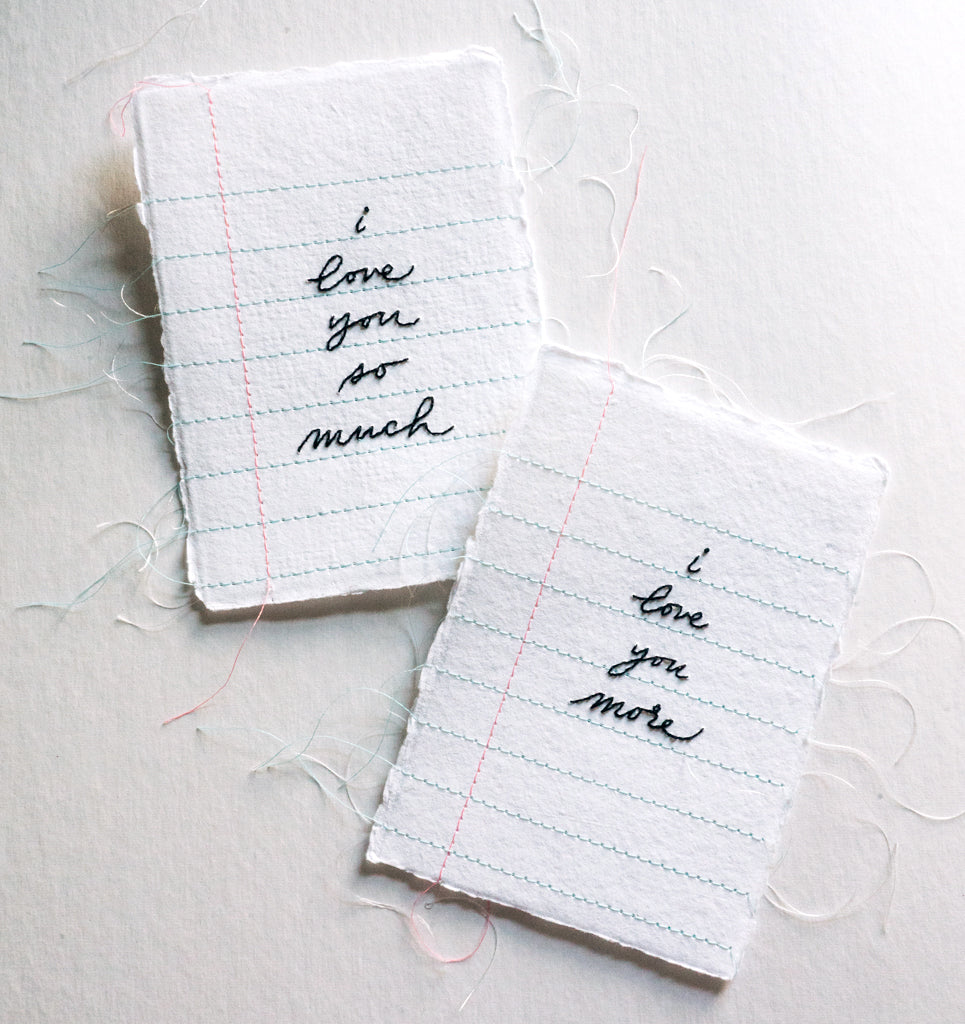 i
love
you
so
much
i
love
you
more